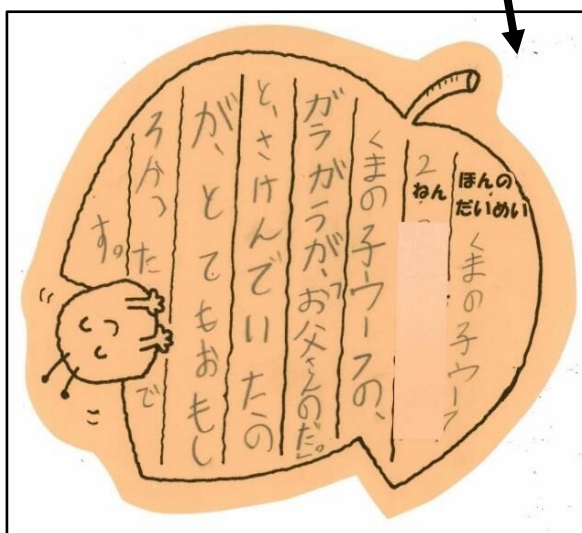 ほんの
だいめい くまの子ウーフ
2ねん
くまの子ウーフの、
ガラガラが、「お父さんのだ。」
と、さけんでいたの
が、とてもおもし
ろかったで
す。